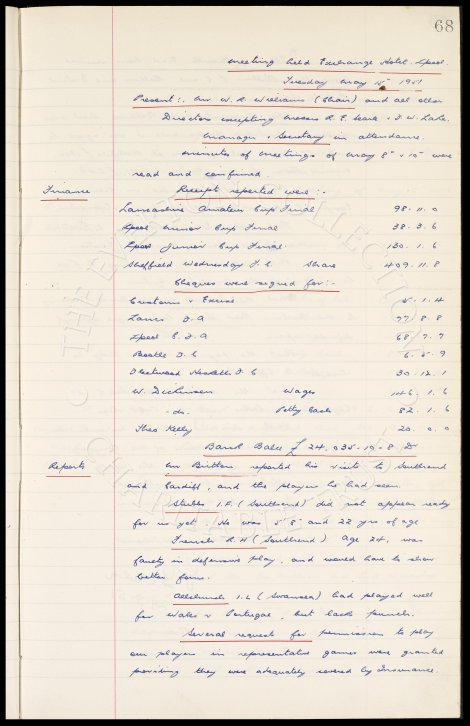 68
Meeting held Exchange Hotel. Lpool.
Tuesday May 15th 1951
Present:. Mr W. R. Williams (Chair) and all other
Directors excepting Messrs R. E. Searle & J. W. Lake.
Manager & Secretary in attendance.
Minutes of meetings of May 8th & 10th were
read and confirmed.
Finance
Receipt reported were :-
Lancashire Amateur Cup Final 98. 11. 0
Lpool Minor Cup Final 38. 3. 6
Lpool Junior Cup Final 130. 1. 6
Sheffield Wednesday F.C. Share 409. 11. 8
Cheques were signed for :-
Customs & Excise 5. 1. 4
Lancs F.A 77. 8. 8
Lpool C.F.A 68. 7. 7
Bootle F.C 6. 5. 9
Fleetwood Hesketh F.C 30. 12. 1
W. Dickinson Wages 146. 1. 6
-do- Petty Cash 82. 1. 6
Theo Kelly 20. 0. 0
Bank Bal £ 24,035-19-8 Dr
Reports
Mr Britton reported his visits to Southend
and Cardiff, and the players he had seen.
Stubbs I.F. (Southend) did not appear ready
for us yet. He was 5'8" and 22 yrs of age
French R.H (Southend) age 24, was
faulty in defensive play, and would have to show
better form.
Allchurch I.L (Swansea) had played well
for Wales v Portugal, but lacks punch.
Several request for permission to play
our players in representative games were granted
providing they were adequately covered by Insurance.
THE EVERTON COLLECTION
CHARITABLE